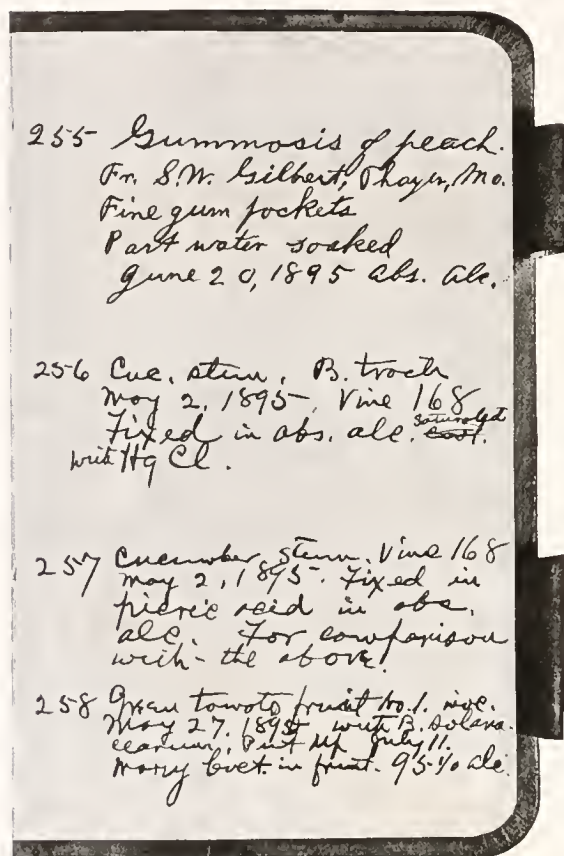 255 Gummosis of peach.
Fr. S.W. Gilbert, Thayer, Mo.
Fine gum pockets
Part water soaked
June 20, 1895 abs. alc.
256 Cuc. stem. B. trach
May 2, 1895. Vine 168
Fixed in abs. alc. saturated cont.
with Hg Cl.
257 Cucumber stem. Vine 168
May 2, 1895. Fixed in
picric acid in abs.
alc. For comparison
with the above.
258 Green tomato fruit No. 1. inoc.
May 27, 1895 with B. solana-
cearum. Put up July 11.
Many bact. in fruit. 95% alc.